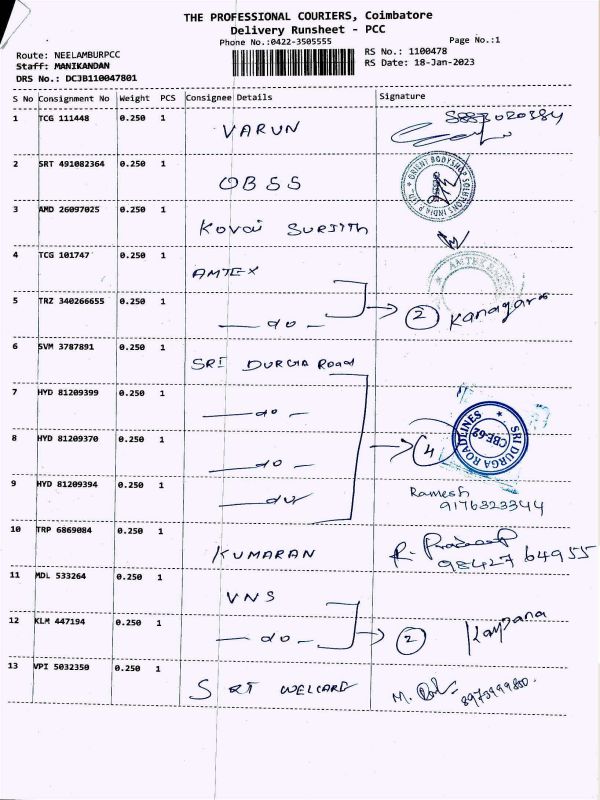 THE PROFESSIONAL COURIERS, Coimbatore
Delivery Runsheet - PCC
Phone No.:0422-3505555 Page No.:1
Route: NEELAMBURPCC RS No.: 1100478
Staff: MANIKANDAN RS Date: 18-Jan-2023
DRS No.: DCJB110047801
S No Consignment No Weight PCS Consignee Details Signature
1 TCG 111448 0.250 1 VARUN
2 SRT 491082364 0.250 1 OBSS
ORIENT BODYSHOP SOLUTIONS INDIA P LTD.
3 AMD 26097025 0.250 1 Kovai SURJITH
4 TCG 101747 0.250 1 AMTEX
5 TRZ 340266655 0.250 1 — do — 2 Kanagara
6 SVM 3787891 0.250 1 SRI DURGA Road
7 HYD 81209399 0.250 1 — do —
8 HYD 81209370 0.250 1 — do — 4
SRI DURGA ROADLINES CBE-62
9 HYD 81209394 0.250 1 — do Ramesh
9176323344
10 TRP 6869084 0.250 1 KUMARAN R. Pradeep
98427 64955
11 MDL 533264 0.250 1 VNS
12 KLM 447194 0.250 1 — do — 2 Kalpana
13 VPI 5032350 0.250 1 S RT WELCARD M.